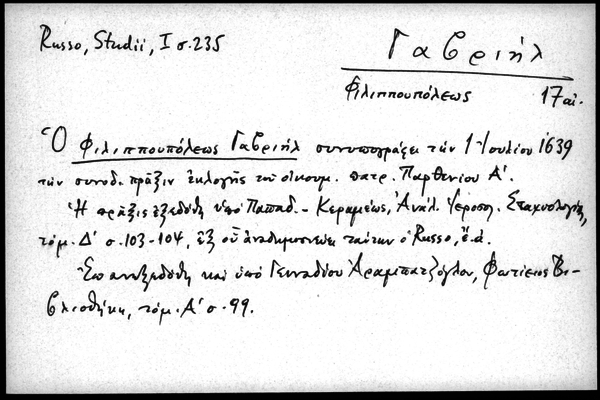 Russo, Studii, I σ. 235
Γαβριήλ
Φιλιππουπόλεως 17 αἰ.
Ὁ Φιλιππουπόλεως Γαβριήλ συνυπογράφει τήν 1 Ἰουλίου 1639
τήν συνοδ. πρᾶξιν ἐκλογῆς τοῦ οἰκουμ. πατρ. Παρθενίου Α΄.
Ἡ πρᾶξις ἐξεδόθη ὑπό Παπαδ.-Κεραμέως, Ἀνάλ. Ἱεροσ. Σταχυολογίας,
τόμ. Δ΄ σ. 103-104, ἐξ οὗ ἀναδημοσιεύει ταύτην ὁ Russo, ἔ.ἀ.
Ἐπανεξεδόθη καί ὑπό Γενναδίου Ἀραμπατζόγλου, Φωτίειος Βι-
βλιοθήκη, τόμ. Α΄ σ. 99.